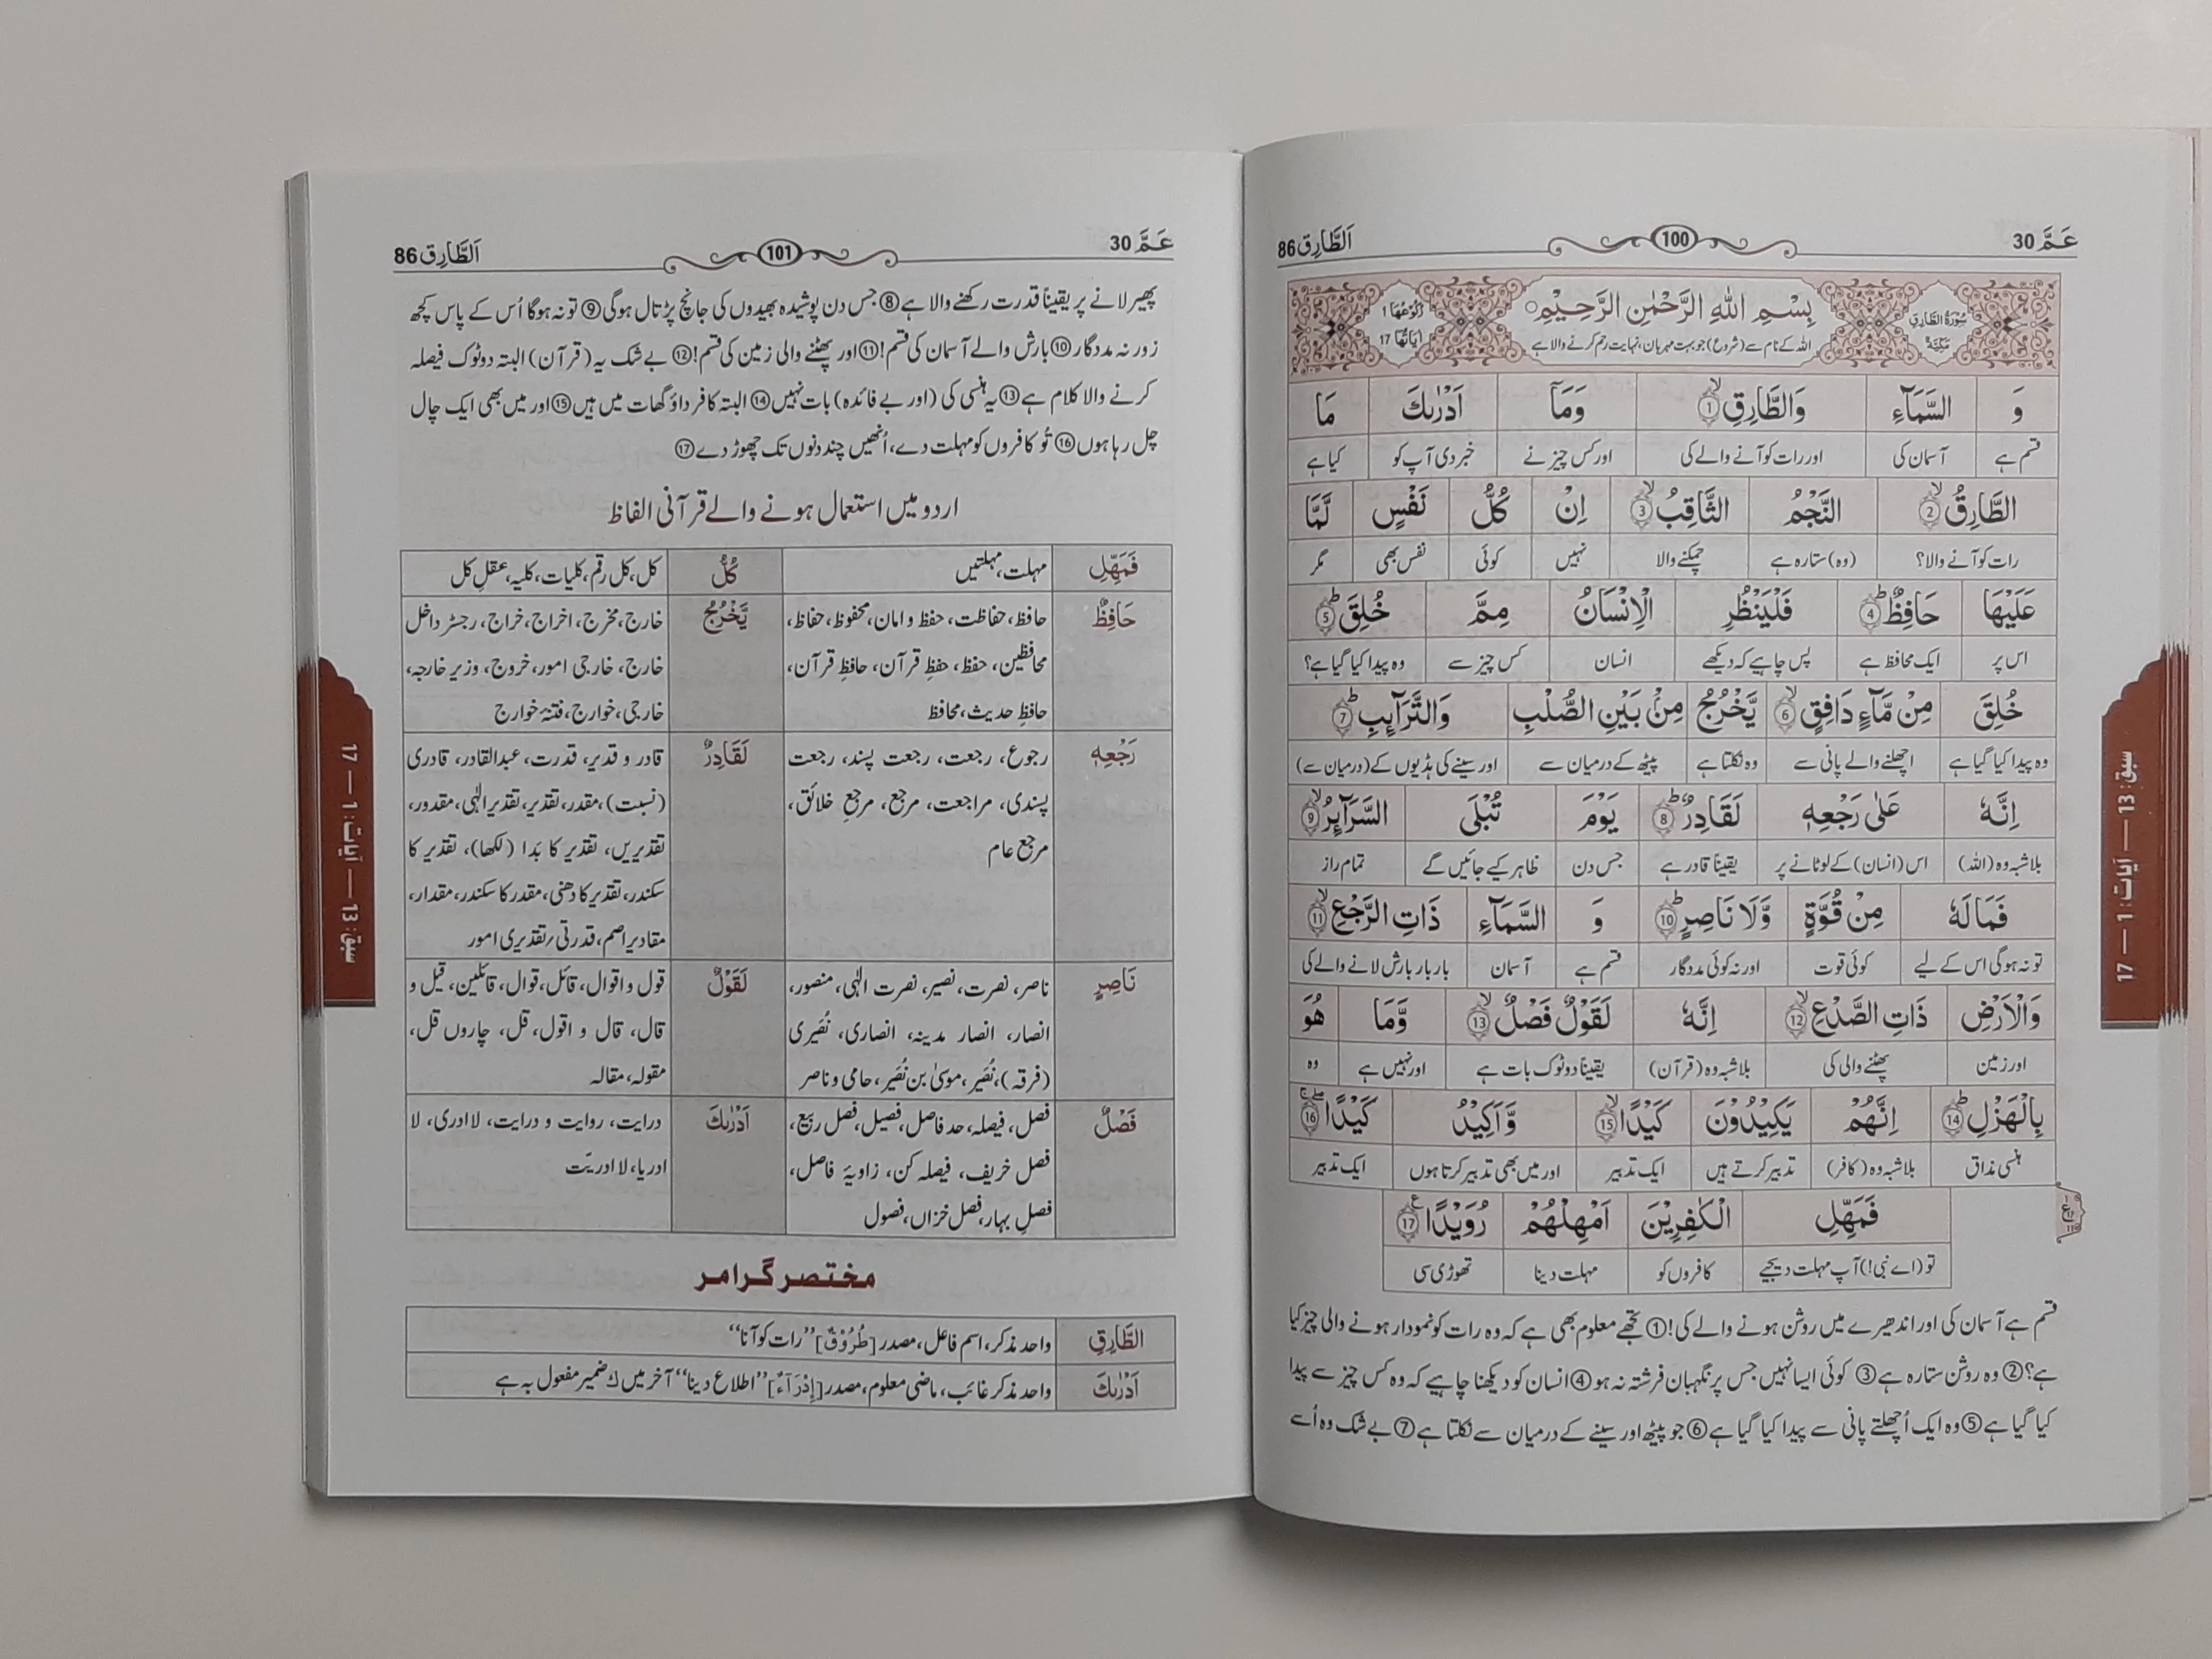 عَمَّ 30
100
اَلطَّارِق 86
سُوْرَةُ الطَّارِقِ
مَكِّيَّةٌ
بِسْمِ اللّٰهِ الرَّحْمٰنِ الرَّحِيْمِ
اللہ کے نام سے (شروع) جو بہت مہربان، نہایت رحم کرنے والا ہے
رُكُوْعُهَا 1
اٰيَاتُهَا 17
وَ السَّمَآءِ وَالطَّارِقِ ۙ۝1 وَمَآ اَدْرٰىكَ مَا
قسم ہے آسمان کی اور رات کو آنے والے کی اور کس چیز نے خبر دی آپ کو کیا ہے
الطَّارِقُ ۙ۝2 النَّجْمُ الثَّاقِبُ ۙ۝3 اِنْ كُلُّ نَفْسٍ لَّمَّا
رات کو آنے والا؟ (وہ) ستارہ ہے چمکنے والا نہیں کوئی نفس بھی مگر
عَلَيْهَا حَافِظٌ ؕ۝4 فَلْيَنْظُرِ الْاِنْسَانُ مِمَّ خُلِقَ ؕ۝5
اس پر ایک محافظ ہے پس چاہیے کہ دیکھے انسان کس چیز سے وہ پیدا کیا گیا ہے؟
خُلِقَ مِنْ مَّآءٍ دَافِقٍ ۙ۝6 يَّخْرُجُ مِنْۢ بَيْنِ الصُّلْبِ وَالتَّرَآىِٕبِ ؕ۝7
وہ پیدا کیا گیا ہے اچھلنے والے پانی سے وہ نکلتا ہے پیٹھ کے درمیان سے اور سینے کی ہڈیوں کے (درمیان سے)
اِنَّهٗ عَلٰى رَجْعِهٖ لَقَادِرٌ ؕ۝8 يَوْمَ تُبْلَى السَّرَآىِٕرُ ۙ۝9
بلاشبہ وہ (اللہ) اس (انسان) کے لوٹانے پر یقیناً قادر ہے جس دن ظاہر کیے جائیں گے تمام راز
فَمَا لَهٗ مِنْ قُوَّةٍ وَّلَا نَاصِرٍ ؕ۝10 وَ السَّمَآءِ ذَاتِ الرَّجْعِ ۙ۝11
تو نہ ہوگی اس کے لیے کوئی قوت اور نہ کوئی مددگار قسم ہے آسمان بار بار بارش لانے والے کی
وَالْاَرْضِ ذَاتِ الصَّدْعِ ۙ۝12 اِنَّهٗ لَقَوْلٌ فَصْلٌ ۙ۝13 وَّمَا هُوَ
اور زمین پھٹنے والی کی بلاشبہ وہ (قرآن) یقیناً دوٹوک بات ہے اور نہیں ہے وہ
بِالْهَزْلِ ؕ۝14 اِنَّهُمْ يَكِيْدُوْنَ كَيْدًا ۙ۝15 وَّاَكِيْدُ كَيْدًا ۝16
ہنسی مذاق بلاشبہ وہ (کافر) تدبیر کرتے ہیں ایک تدبیر اور میں بھی تدبیر کرتا ہوں ایک تدبیر
فَمَهِّلِ الْكٰفِرِيْنَ اَمْهِلْهُمْ رُوَيْدًا ۝17
تو (اے نبی!) آپ مہلت دیجیے کافروں کو مہلت دینا تھوڑی سی
قسم ہے آسمان کی اور اندھیرے میں روشن ہونے والے کی! ① تجھے معلوم بھی ہے کہ وہ رات کو نمودار ہونے والی چیز کیا
ہے؟ ② وہ روشن ستارہ ہے ③ کوئی ایسا نہیں جس پر نگہبان فرشتہ نہ ہو ④ انسان کو دیکھنا چاہیے کہ وہ کس چیز سے پیدا
کیا گیا ہے ⑤ وہ ایک اُچھلتے پانی سے پیدا کیا گیا ہے ⑥ جو پیٹھ اور سینے کے درمیان سے نکلتا ہے ⑦ بے شک وہ اُسے
سبق: 13 — آیات: 1 — 17
عَمَّ 30
101
اَلطَّارِق 86
پھیر لانے پر یقیناً قدرت رکھنے والا ہے ⑧ جس دن پوشیدہ بھیدوں کی جانچ پڑتال ہوگی ⑨ تو نہ ہوگا اُس کے پاس کچھ
زور نہ مددگار ⑩ بارش والے آسمان کی قسم! ⑪ اور پھٹنے والی زمین کی قسم! ⑫ بے شک یہ (قرآن) البتہ دوٹوک فیصلہ
کرنے والا کلام ہے ⑬ یہ ہنسی کی (اور بے فائدہ) بات نہیں ⑭ البتہ کافر داؤ گھات میں ہیں ⑮ اور میں بھی ایک چال
چل رہا ہوں ⑯ تُو کافروں کو مہلت دے، اُنھیں چند دنوں تک چھوڑ دے ⑰
اردو میں استعمال ہونے والے قرآنی الفاظ
فَمَهِّلِ
مہلت، مہلتیں
كُلُّ
کل، کل رقم، کلیات، کلیہ، عقل کل
حَافِظٌ
حافظ، حفاظت، حفظ و امان، محفوظ، حفاظ،
محافظین، حفظ، حفظِ قرآن، حافظِ قرآن،
حافظِ حدیث، محافظ
يَّخْرُجُ
خارج، مخرج، اخراج، خراج، رجسٹر داخل
خارج، خارجی امور، خروج، وزیر خارجہ،
خارجی، خوارج، فتنۂ خوارج
رَجْعِهٖ
رجوع، رجعت، رجعت پسند، رجعت
پسندی، مراجعت، مرجع، مرجعِ خلائق،
مرجع عام
لَقَادِرٌ
قادر و قدیر، قدرت، عبدالقادر، قادری
(نسبت)، مقدر، تقدیر، تقدیرِ الٰہی، مقدور،
تقدیریں، تقدیر کا بَدا (لکھا)، تقدیر کا
سکندر، تقدیر کا دھنی، مقدر کا سکندر، مقدار،
مقادیر اصم، قدرتی/تقدیری امور
نَاصِرٍ
ناصر، نصرت، نصیر، نصرت الٰہی، منصور،
انصار، انصار مدینہ، انصاری، نُصَیری
(فرقہ)، نُصَیر، موسیٰ بن نُصَیر، حامی و ناصر
لَقَوْلٌ
قول و اقوال، قائل، قوال، قائلین، قیل و
قال، قال و اقول، قل، چاروں قل،
مقولہ، مقالہ
فَصْلٌ
فصل، فیصلہ، حد فاصل، فصیل، فصل ربیع،
فصل خریف، فیصلہ کن، زاویۂ فاصل،
فصلِ بہار، فصل خزاں، فصول
اَدْرٰىكَ
درایت، روایت و درایت، لا ادری، لا
ادریا، لا ادریّت
مختصر گرامر
الطَّارِقِ
واحد مذکر، اسم فاعل، مصدر [طُرُوْقٌ] ”رات کو آنا“
اَدْرٰىكَ
واحد مذکر غائب، ماضی معلوم، مصدر [إِدْرَآءٌ] ”اطلاع دینا“ آخر میں ك ضمیر مفعول بہ ہے
سبق: 13 — آیات: 1 — 17